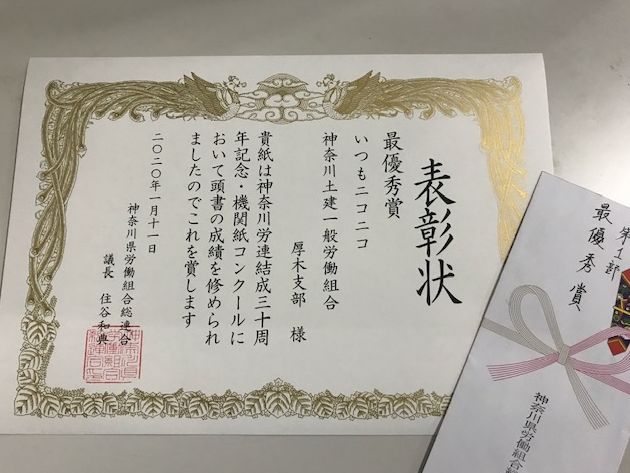 表彰状
最優秀賞
いつもニコニコ
神奈川土建一般労働組合
厚木支部 様
貴紙は神奈川労連結成三十周
年記念・機関紙コンクールに
おいて頭書の成績を修められ
ましたのでこれを賞します
二〇二〇年一月十一日
神奈川県労働組合総連合
議長 住谷和典
第1部
最優秀賞
神奈川県労働組合総